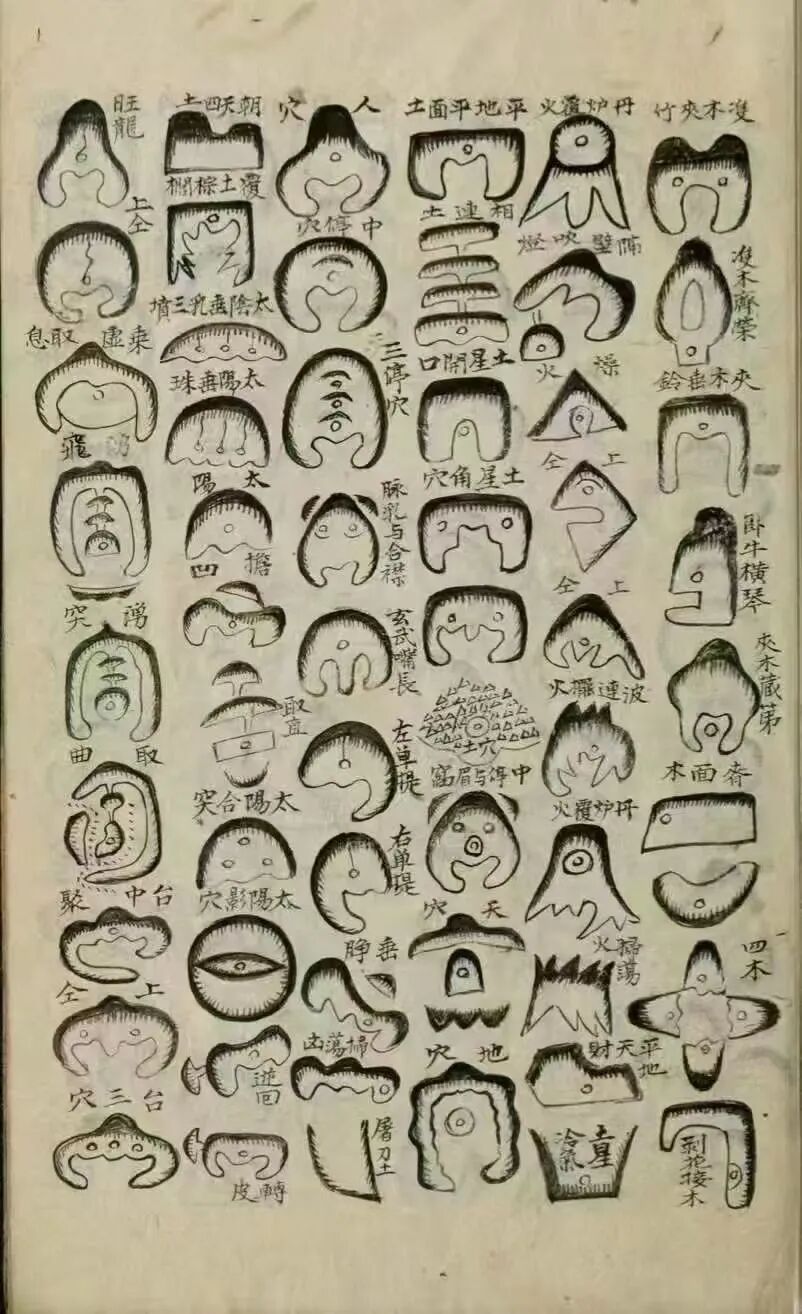 㕠木夾竹
㕠木齊榮
夾木垂鈴
卧牛橫琴
夾木蔵苐
面木
四木
剥花接木
丹炉覆火
隔壁吹燈
燥火
上仝
上仝
波連擺火
丹炉覆火
掃蕩火
平地天財
土星冷氣
平地平面土
相連土
土星開口
土星角穴
土穴
中停与眉窩
天穴
地穴
人穴
中停穴
三停穴
脉乳与合襟
玄武嘴長
左单提
右单提
垂
掃蕩凶
屠刀土
朝天四土
覆土棕櫚
太陰垂乳三墳
太陽垂珠
太陽
擔凹
取直
太陽合突
太陽影穴
逆回
轉皮
旺龍
上仝
乘虛取息
湧突
取曲
台中聚
上仝
台三穴